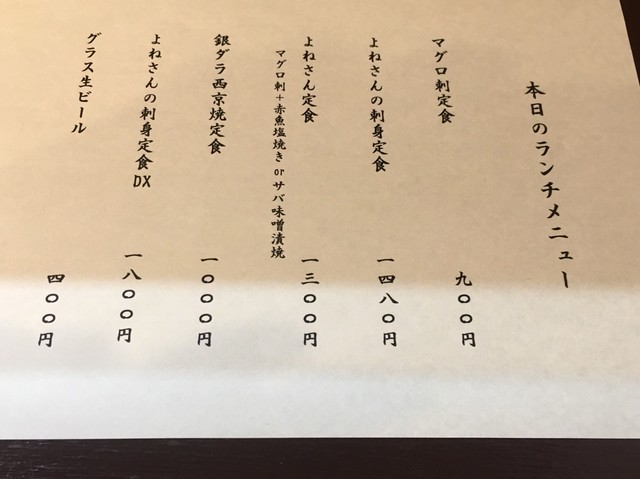 本日のランチメニュー
マグロ刺定食 九〇〇円
よねさんの刺身定食 一四八〇円
よねさん定食 一三〇〇円
マグロ刺+赤魚塩焼き or サバ味噌漬焼
銀ダラ西京焼定食 一〇〇〇円
よねさんの刺身定食DX 一八〇〇円
グラス生ビール 四〇〇円